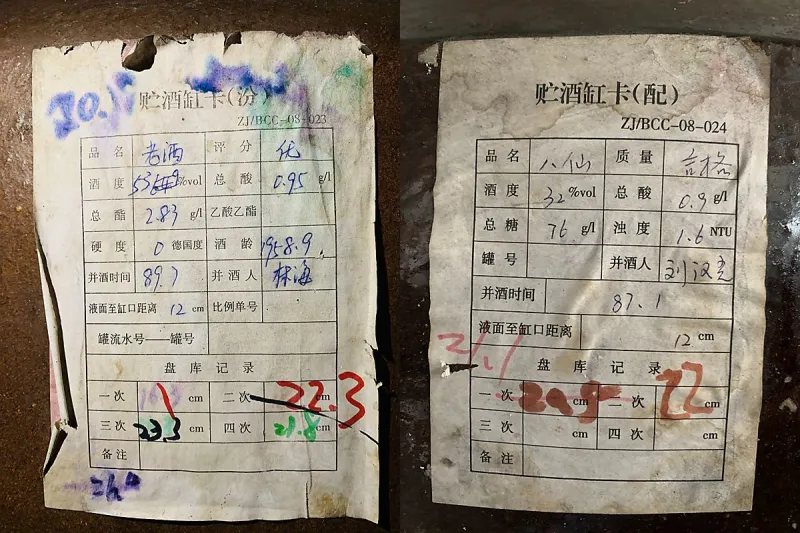 贮酒缸卡(汾)
ZJ/BCC-08-023
品名 老酒 评分 优
酒度 %vol 总酸 0.95 g/l
总酯 2.83 g/l 乙酸乙酯
硬度 0 德国度 酒龄 1958.9
并酒时间 89.7 并酒人 林海
液面至缸口距离 12 cm 比例单号
罐流水号——罐号
盘库记录
一次 cm 二次 22.3 cm
三次 23.3 cm 四次 21.8 cm
备注
贮酒缸卡(配)
ZJ/BCC-08-024
品名 八仙 质量 合格
酒度 32 %vol 总酸 0.9 g/l
总糖 76 g/l 浊度 1.6 NTU
罐号 并酒人
并酒时间 87.1
液面至缸口距离 12 cm
盘库记录
一次 20.5 cm 二次 22 cm
三次 cm 四次 cm
备注